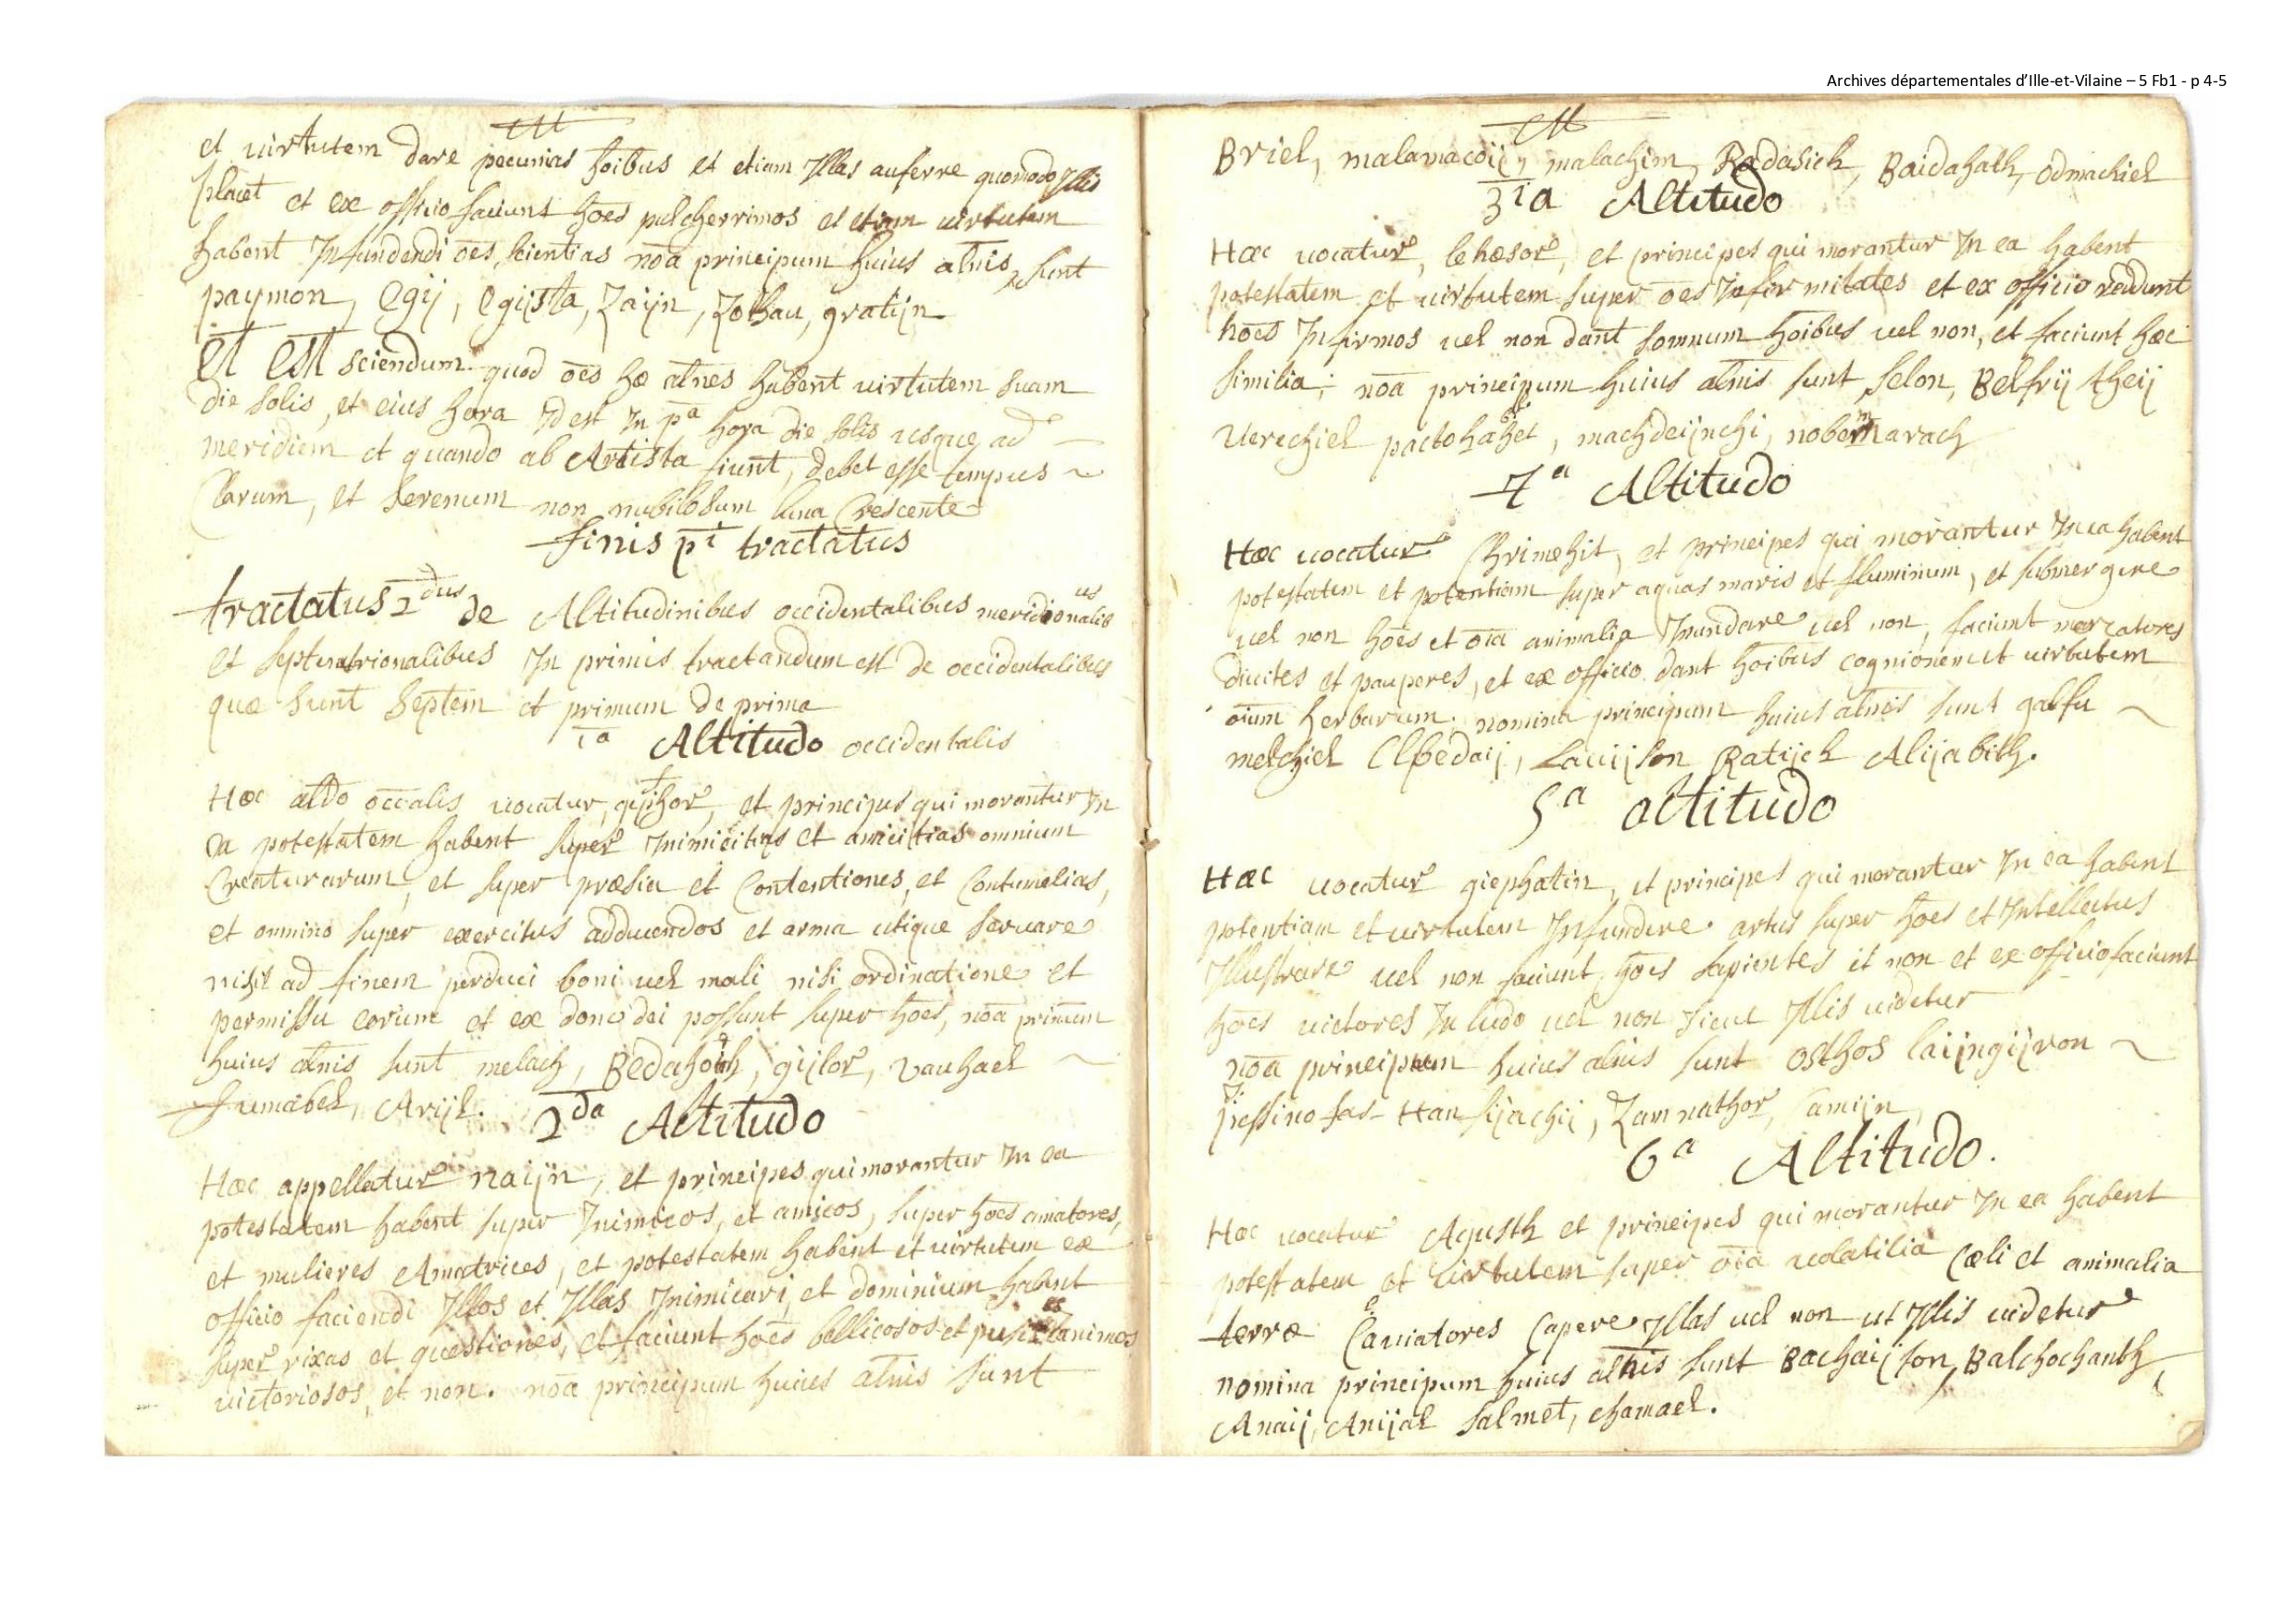 Archives départementales d'Ille-et-Vilaine – 5 Fb1 - p 4-5
et uirtutem dare pecunias hoibus et etiam Illas auferre quomodo Illis
placet et ex officio faciunt hoēs pulcherrimos et etiam uirtutem
habent Infundendi oēs scientias noā principum huius altnis sunt
paymon, Egij, Egijsta, Zaijn, Zothau, gratijn
Et Est sciendum quod oēs hæ altnēs habent uirtutem suam
die solis, et eius hora Id est In pa hora die solis usque ad
meridiem et quando ab Artista fiunt, debet esse tempus
Clarum, et serenum non nubilosum luna Crescente
finis pi tractatus
tractatus 2dus de Altitudinibus occidentalibus meridionalibus
et septentrionalibus In primis tractandum est de occidentalibus
quæ sunt septem et primum de prima
1a Altitudo occidentalis
Hæc altdo occālis uocatur, et principes qui morantur In
ea potestatem habent super Inimicitias et amicitias omnium
Creaturarum, et super præsia et Contentiones, et Contumelias,
et omnino super exercitus adducendos et arma utique seruare
nihil ad finem perduci boni uel mali nisi ordinatione et
permissu eorum et ex dono dei possunt super hoēs, noā principum
huius altnis sunt melach, gijlor, vauhael
fumabel, Arijl.
2da Altitudo
Hæc appellatur naijn, et principes qui morantur In ea
potestatem habent super Inimicos, et amicos, super hoēs amatores,
et mulieres Amatrices, et potestatem habent et uirtutem ex
officio faciendi Illos et Illas Inimicari, et dominium habent
super rixas et quæstiones, et faciunt hoēs bellicosos et pusillanimos
uictoriosos, et non. noā principum huius altnis sunt
Briel, malamacoij, malachim, Radasich, Baidahath, Odmachiel
3ia Altitudo
Hæc uocatur, lehæsor, et principes qui morantur In ea habent
potestatem et uirtutem super oēs Infirmitates et ex officio reddunt
hoēs Infirmos uel non dant somnum hoibus uel non, et faciunt hæc
similia; noā principum huius altnis sunt selon, Belfrij theij
Uerechiel pactohahet, machdeijnchi, nobermarach
4a Altitudo
Hæc uocatur Chrimehit, et principes qui morantur In ea habent
potestatem et potentiam super aquas maris et fluminum, et submergere
uel non hoēs et oīa animalia Inundare uel non, faciunt mercatores
diuites et pauperes, et ex officio dant hoibus cognionem et uirtutem
oīum herbarum. nomina principum huius altnis sunt galfu
melchiel Elbedaij, Lauijson Ratijch Alijabith.
5a altitudo
Hæc uocatur giephatin, et principes qui morantur In ea habent
potentiam et uirtutem Infundere artus super hoēs et Intellectus
Illustrare uel non faciunt hoēs sapientes et non et ex officio faciunt
hoēs uictores In ludo uel non sicut Illis uidetur
noā principum huius altnis sunt Osthos laijngijvon
jessinofas Hansijachij, Zamnathor, Camijn
6a Altitudo.
Hæc uocatur Agusth et principes qui morantur In ea habent
potestatem et uirtutem super oīa uolatilia Cæli et animalia
terræ Cauiatores Capere Illas uel non ut Illis uidetur
nomina principum huius altnis sunt Bachaijson, Balchochanth,
Anaij, Anijal salmet, chamael.